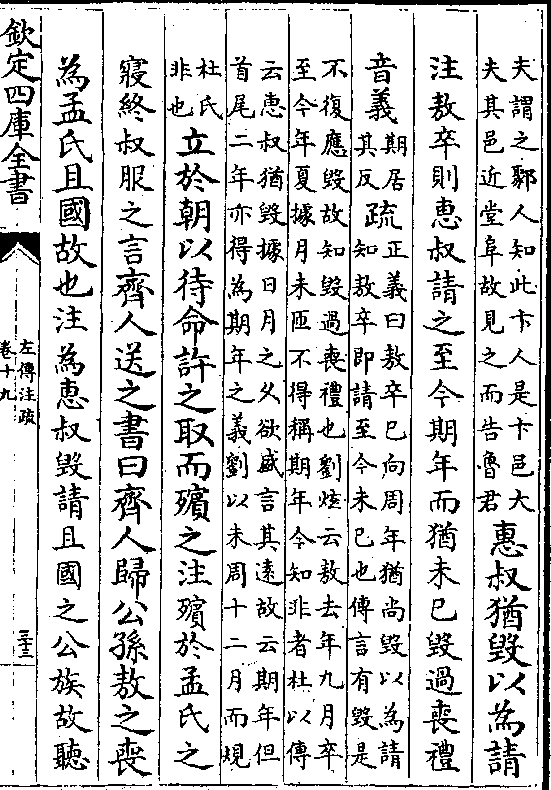 夫謂之鄹人知此卞人是卞邑大
夫其邑近堂阜故見之而告魯君
惠叔猶毀以為請
注敖卒則惠叔請之至今期年而猶未已毀過喪禮
音義
期居
其反
疏
正義曰敖卒已向周年猶尚毀以為請
知敖卒即請至今未已也傳言有毀是
不復應毀故知毀過喪禮也劉炫云敖去年九月卒
至今年夏據月未匝不得稱期年今知非者杜以傳
云惠叔猶毀據日月之久欲盛言其遠故云期年但
首尾二年亦得為期年之義劉以未周十二月而規
杜氏
非也
立於朝以待命許之取而殯之注殯於孟氏之
寢終叔服之言齊人送之書曰齊人歸公孫敖之喪
為孟氏且國故也注為惠叔毀請且國之公族故聽
欽定四庫全書
左傳注疏
卷十九
三十三